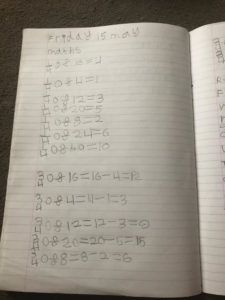 Friday 15 may
maths
1/4 of 16=4
1/4 of 4=1
1/4 of 12=3
1/4 of 20=5
1/4 of 8=2
1/4 of 24=6
1/4 of 40=10
3/4 of 16=16-4=12
3/4 of 4=4-1=3
3/4 of 12=12-3=9
3/4 of 20=20-5=15
3/4 of 8=8-2=6